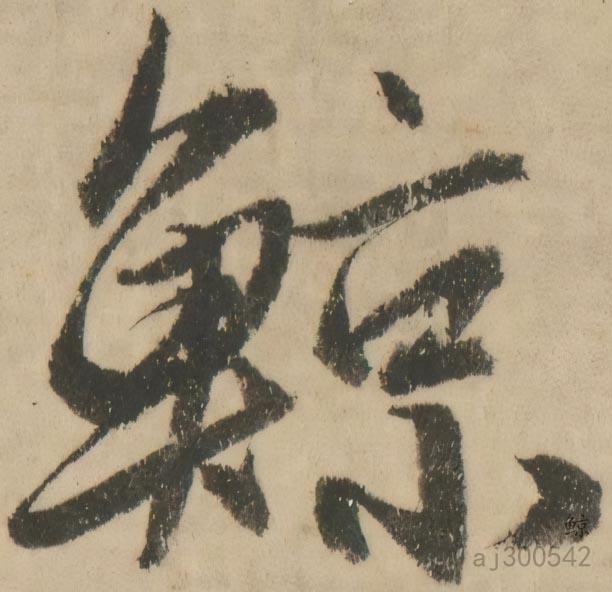 鯨
鯨
aj300542